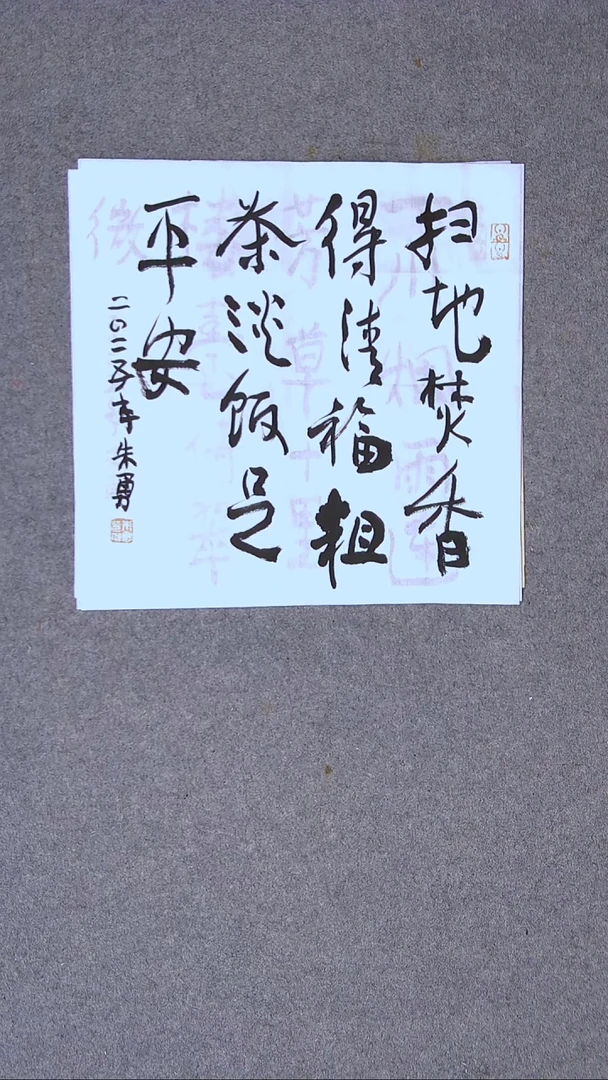 扫地焚香
得清福粗
茶淡饭足
平安
二〇二五年朱勇